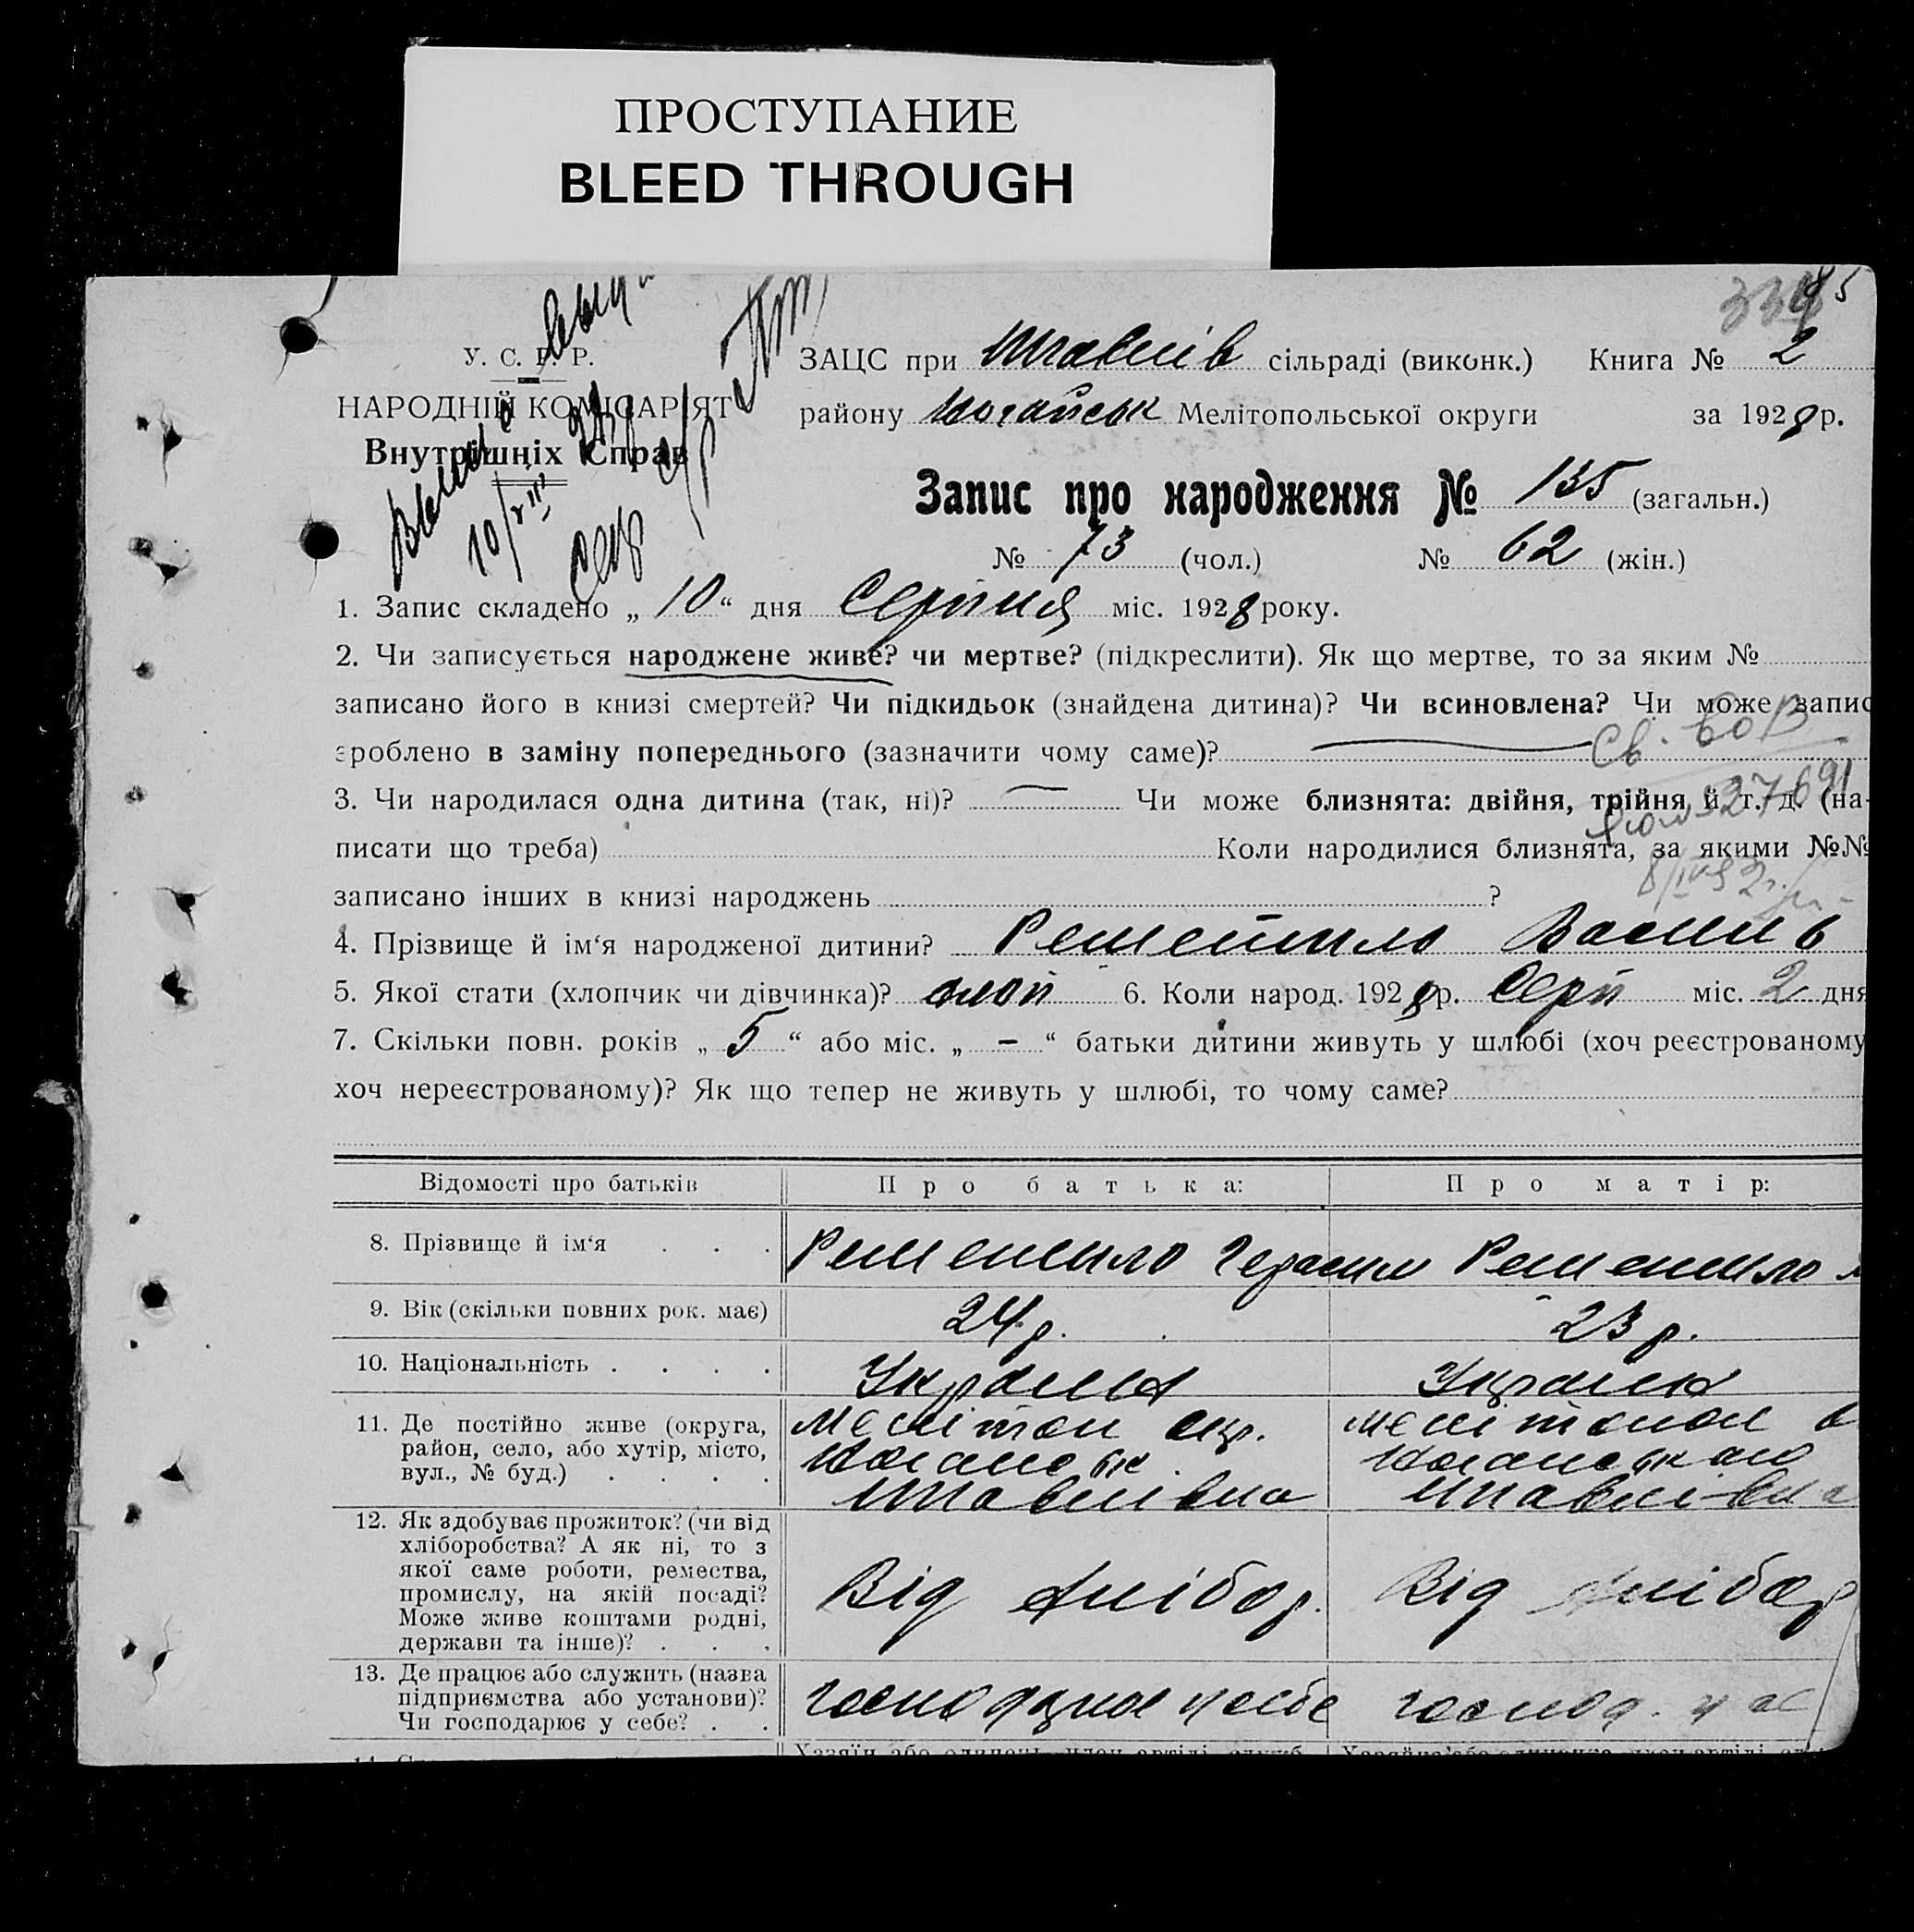 ПРОСТУПАНИЕ
BLEED THROUGH
У. С. Р. Р.
НАРОДНІЙ КОМІСАРІЯТ
Внутрішніх Справ
ЗАЦС при сільраді (виконк.) Книга № 2
району Ногайськ Мелітопольської округи за 1928 р.
Запис про народження № 135 (загальн.)
№ 73 (чол.) № 62 (жін.)
1. Запис складено „ 10 “ дня Серпня міс. 1928 року.
2. Чи записується народжене живе? чи мертве? (підкреслити). Як що мертве, то за яким №
записано його в книзі смертей? Чи підкидьок (знайдена дитина)? Чи всиновлена? Чи може запис
зроблено в заміну попереднього (зазначити чому саме)?
3. Чи народилася одна дитина (так, ні)? — Чи може близнята: двійня, трійня й т. д. (на-
писати що треба) Коли народилися близнята, за якими №№
записано інших в книзі народжень ?
4. Прізвище й ім‘я народженої дитини? Решетило
5. Якої стати (хлопчик чи дівчинка)? хлоп 6. Коли народ. 1928 р. Серп міс. 2 дня
7. Скільки повн. років „ 5 “ або міс. „ – “ батьки дитини живуть у шлюбі (хоч реєстрованому
хоч нереєстрованому)? Як що тепер не живуть у шлюбі, то чому саме?
Відомості про батьків Про батька: Про матір:
8. Прізвище й ім‘я . . . Решетило Герасим Решетило
9. Вік (скільки повних рок. має) 24 р. 23 р.
10. Національність . . . . Україна Україна
11. Де постійно живе (округа,
район, село, або хутір, місто,
вул., № буд.) . . . .
Мелітоп окр.
Мелітопол
12. Як здобуває прожиток? (чи від
хліборобства? А як ні, то з
якої саме роботи, ремества,
промислу, на якій посаді?
Може живе коштами родні,
держави та інше)? . . .
Від хлібор. Від хлібор
13. Де працює або служить (назва
підприємства або установи)?
Чи господарює у себе? . .
господарює у себе господ. у се